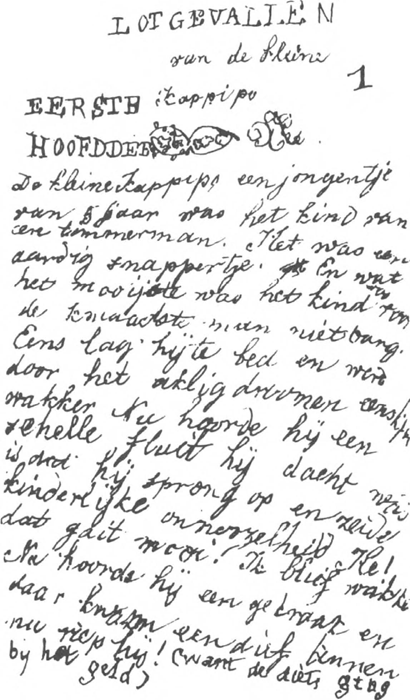 LOTGEVALLEN
van de kleine
1
EERSTE Kappipo
HOOFDDEEL
De kleine Kappipo een jongentje
van 5 jaar was het kind van
een timmerman. Het was een
aardig snappertje. En wat
het mooijste was het kind was voor
de kwaadste man niet bang.
Eens lag hij te bed en werd
door het aklig droomen eensklaps
wakker Nu hoorde hij een
schelle fluit hij dacht
is dat hij sprong op en zeide
kinderlijke onnozelheid He!
dat gait mooi! Ik blijf wakker
Nu hoorde hij een gekraak en
daar kwam een dief binnen
nu riep hij! (want de diefs ging
bij het geld)